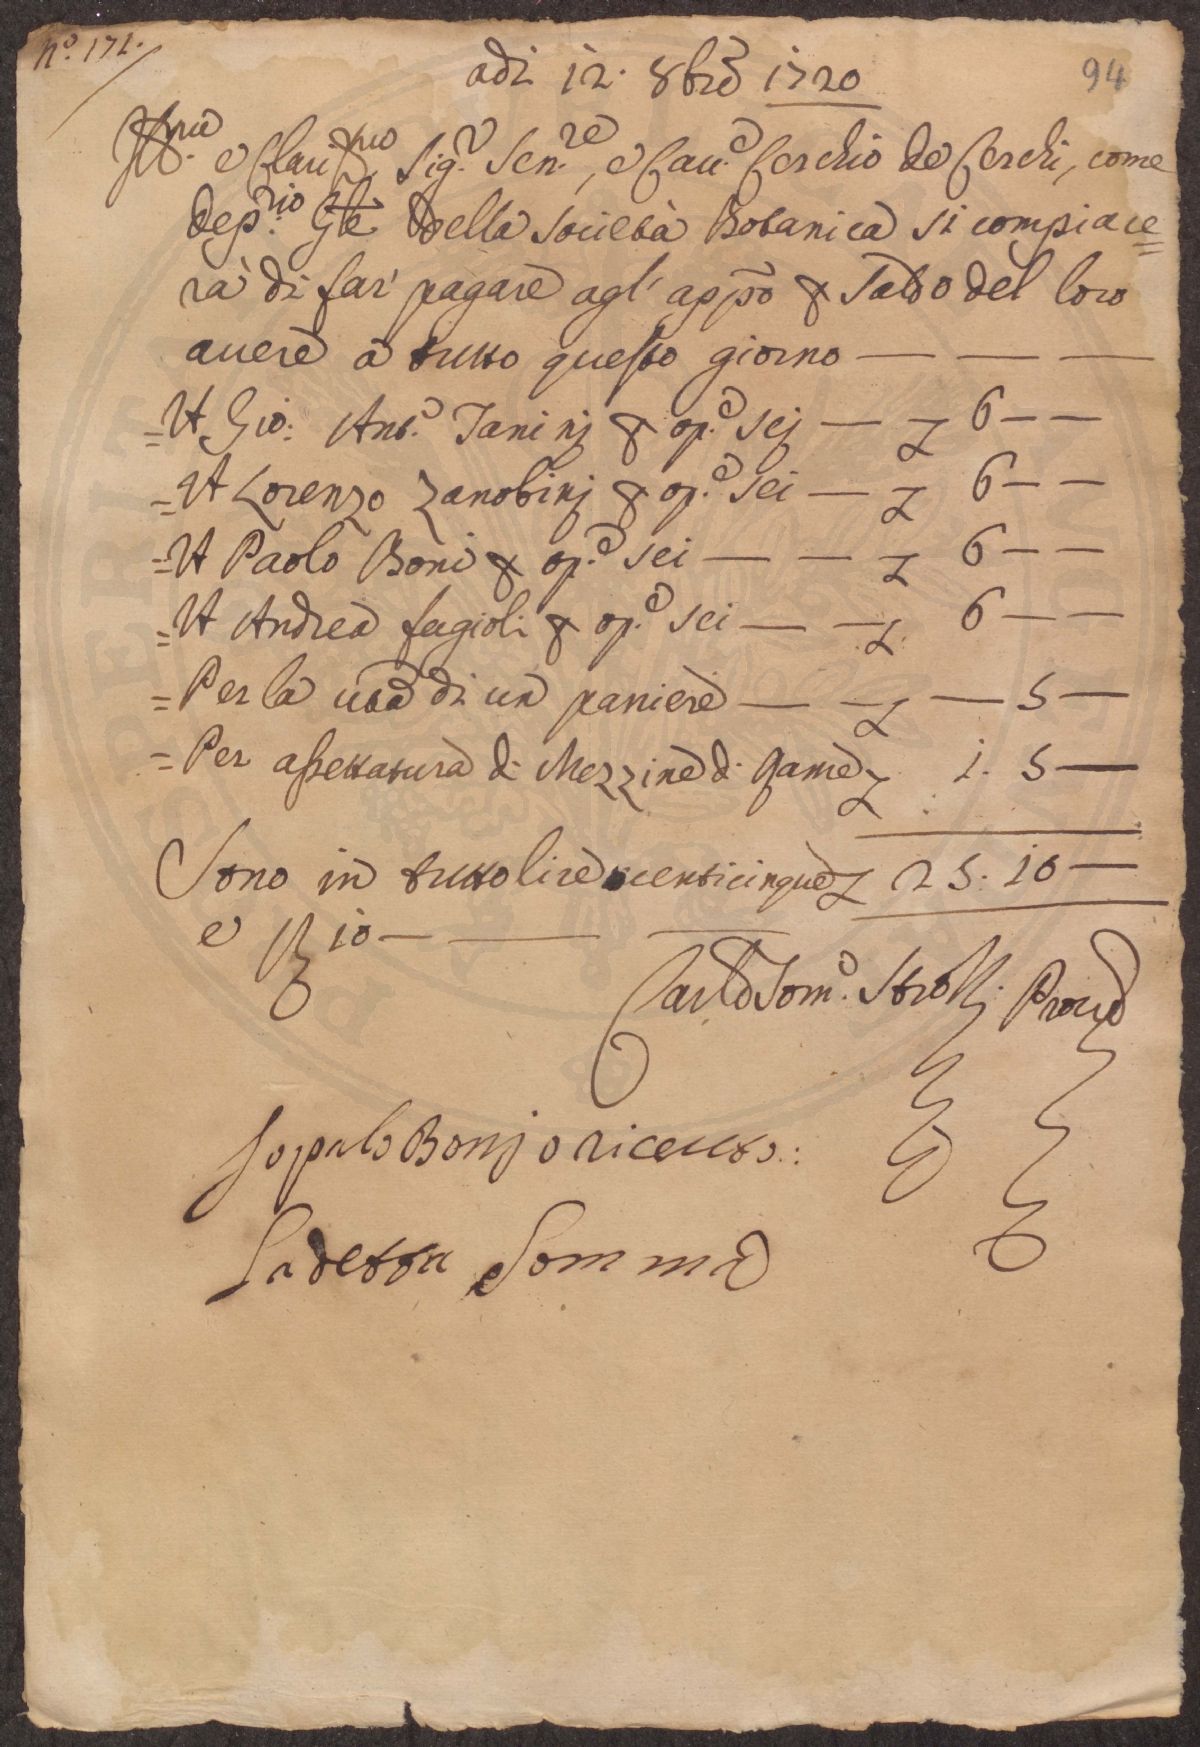 N.º 171.
94
adì 12. 8bre 1720
Ill.mo e Clariss.mo Sig.r Sen.re, e Cau.e Cerchio de Cerchi, come
dep.rio Gle della Società Botanica si compiace=
rà di far' pagare agl' appõ p Saldo del loro
auere a tutto questo giorno — — —
= A Gio: Ant.o Taninj p op.e sej — £ 6 — —
= A Lorenzo Zanobinj p op.e sei — £ 6 — —
= A Paolo Boni p op.e sei — — £ 6 — —
= A Andrea fagioli p op.e sei — — £ 6 — —
= Per la uta di un paniere — — £ — 5 —
= Per assettatura di Mezzine di Rame £ 1. 5 —
Sono in tutto lire uenticinque £ 25. 10 —
e ß 10 — — —
Carlo Tom.o Strozzi Proued
Io paulo Bonj o riceuto:
La detta Somma